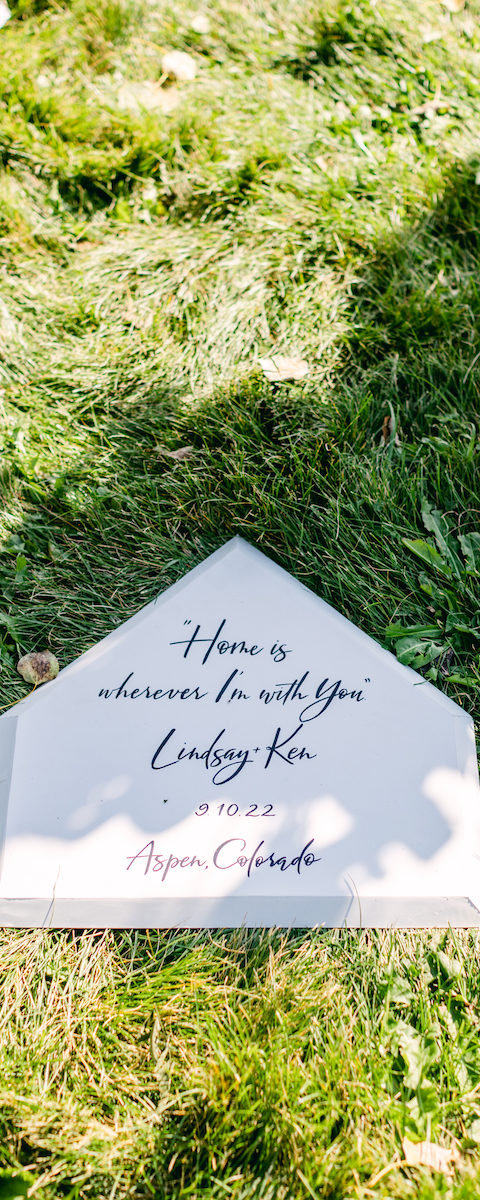 "Home is
wherever I'm with You"
Lindsay + Ken
9.10.22
Aspen, Colorado